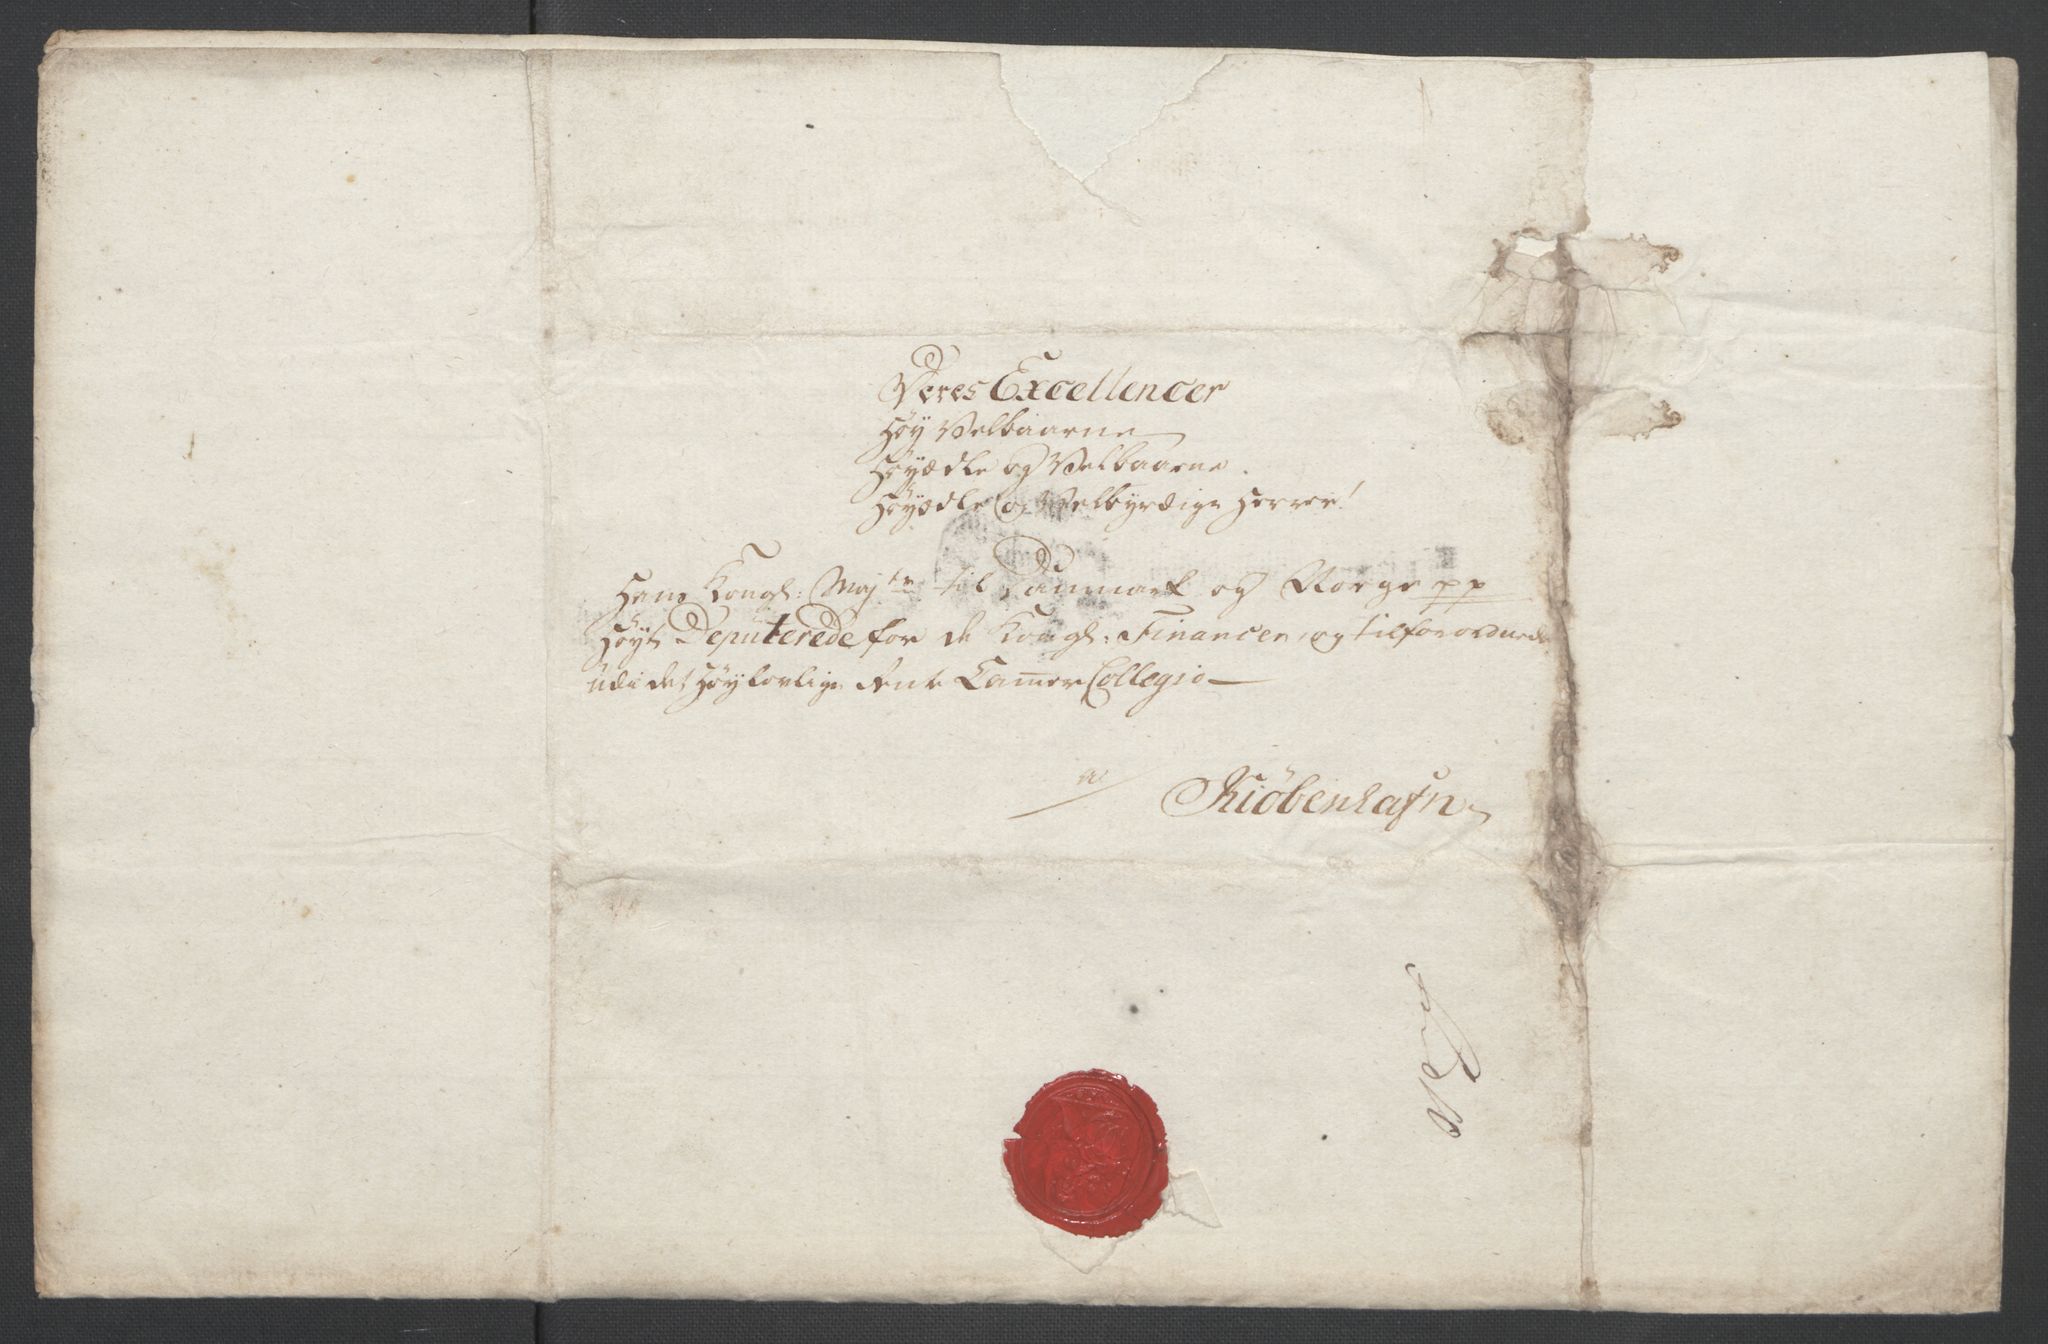 Deres Excellencer
Høy Velbaarne
Høyædle og Velbaarne.
Høyædle og Velbyrdige Herrer!
Hans Kongl: Maj:ts til Danmark og Norge pp
Høyt Deputerede for de Kongl: Financer, og Tilforordnede
udi det Høylovlige Rente Cammer Collegio
a
Kiöbenhafn